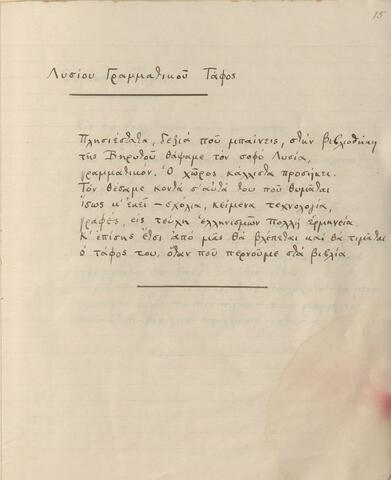 15
Λυσίου Γραμματικοῦ Τάφος
Πλησιέστατα, δεξιά ποῦ μπαίνεις, στην βιβλιοθήκη
τῆς Βηρυτοῦ θάψαμε τόν σοφό Λυσία,
γραμματικόν. Ὁ χῶρος κάλλιστα προσήκει.
Τόν θέσαμε κοντά σ' αὐτά του ποῦ θυμᾶται
ἴσως κ' ἐκεῖ — σχόλια, κείμενα, τεχνολογία,
γραφές, εἰς τεύχη ἑλληνισμῶν πολλή ἑρμηνεία.
Κ' ἐπίσης ἔτσι ἀπό μᾶς θά βλέπεται καί θά τιμᾶται
ὁ τάφος του, ὅταν ποῦ περνοῦμε στά βιβλία.